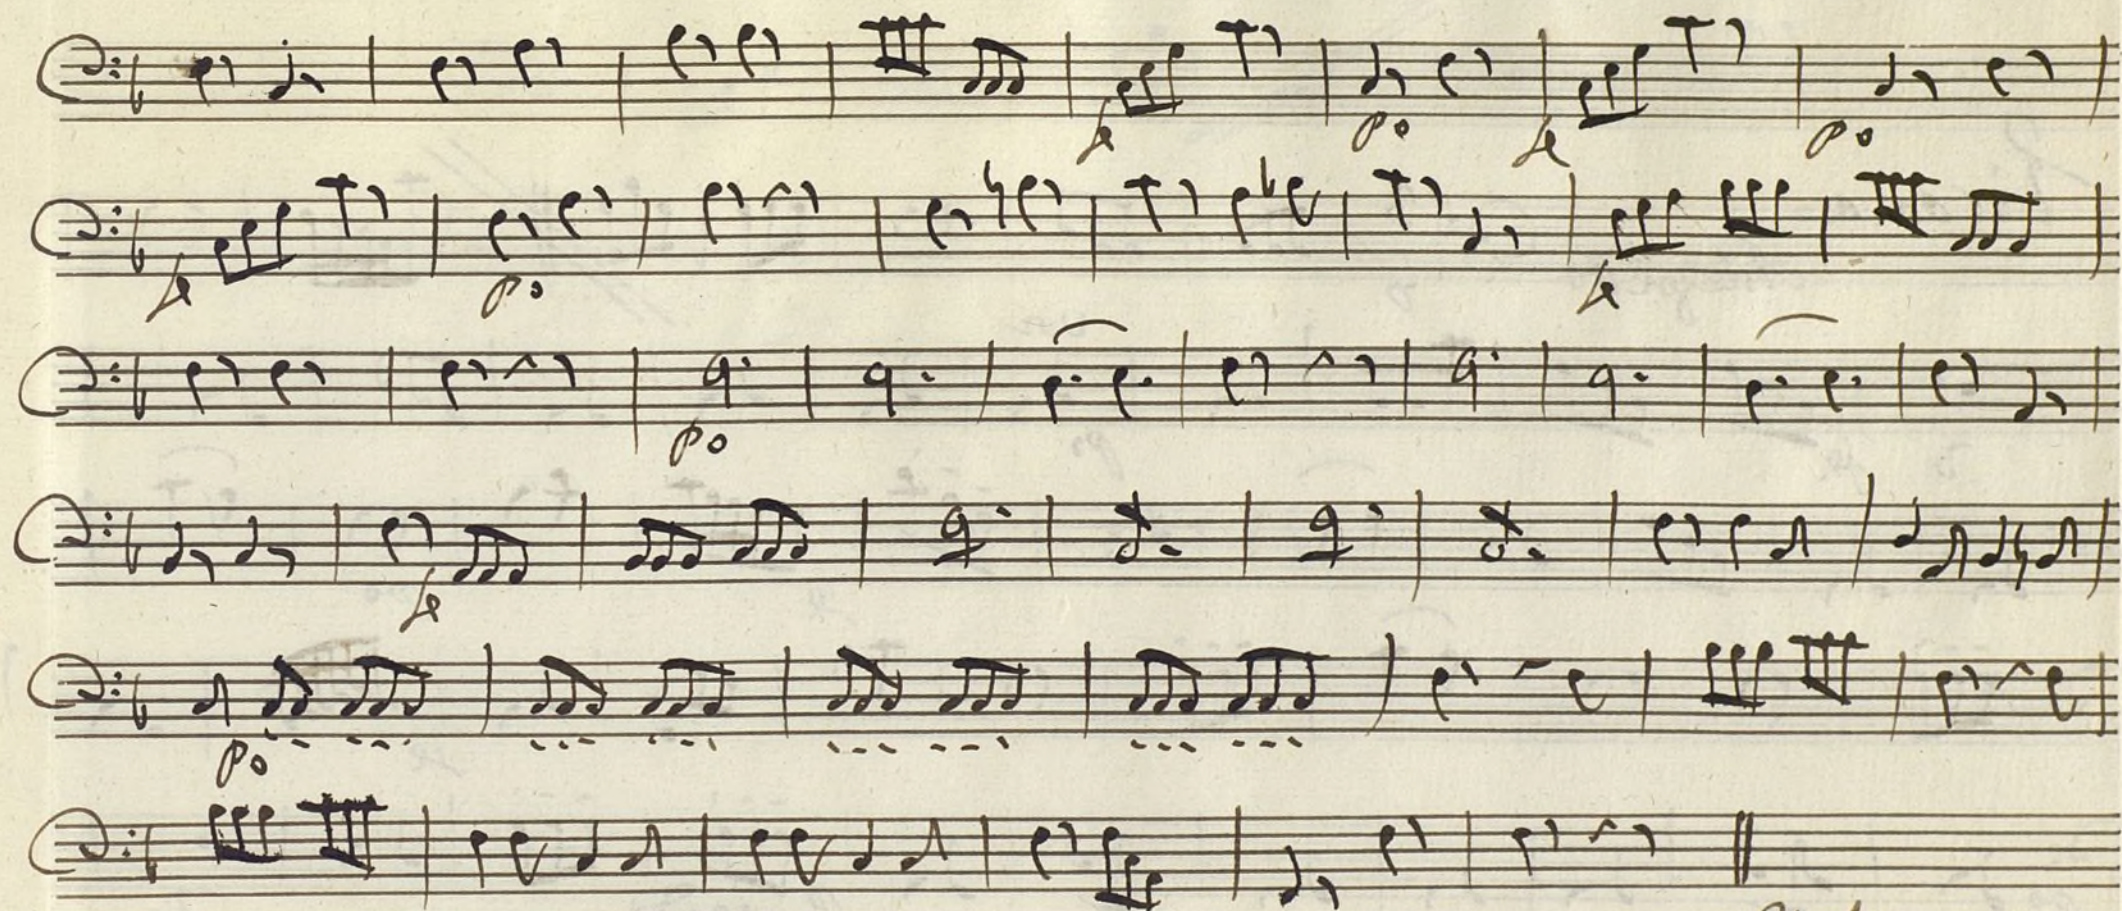 f po f po
f po f
po
f
po